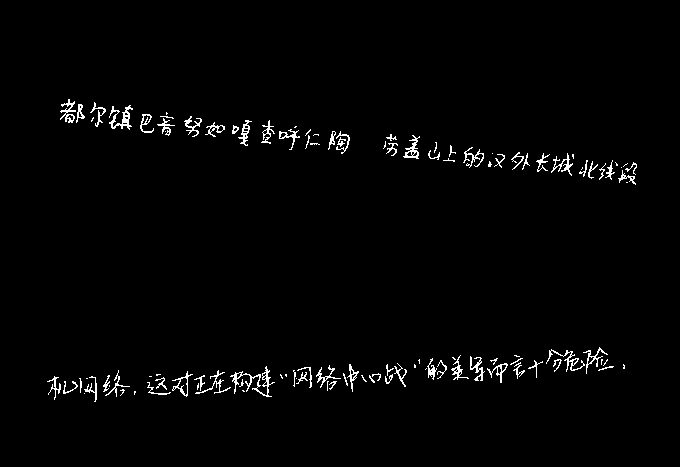 都尔镇巴音努如嘎查呼仁陶 劳盖山上的汉外长城北线段
机网络，这对正在构建“网络中心战”的美军而言十分危险．